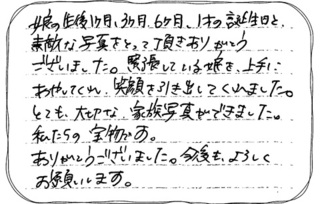 娘の生後1ヶ月、3ヶ月、6ヶ月、1才の誕生日と、
素敵な写真をとって頂きありがとう
ございました。緊張している娘を、上手に
あやしてくれ、笑顔を引き出してくれました。
とても、大切な、家族写真ができました。
私たちの宝物です。
ありがとうございました。今後も、よろしく
お願いします。